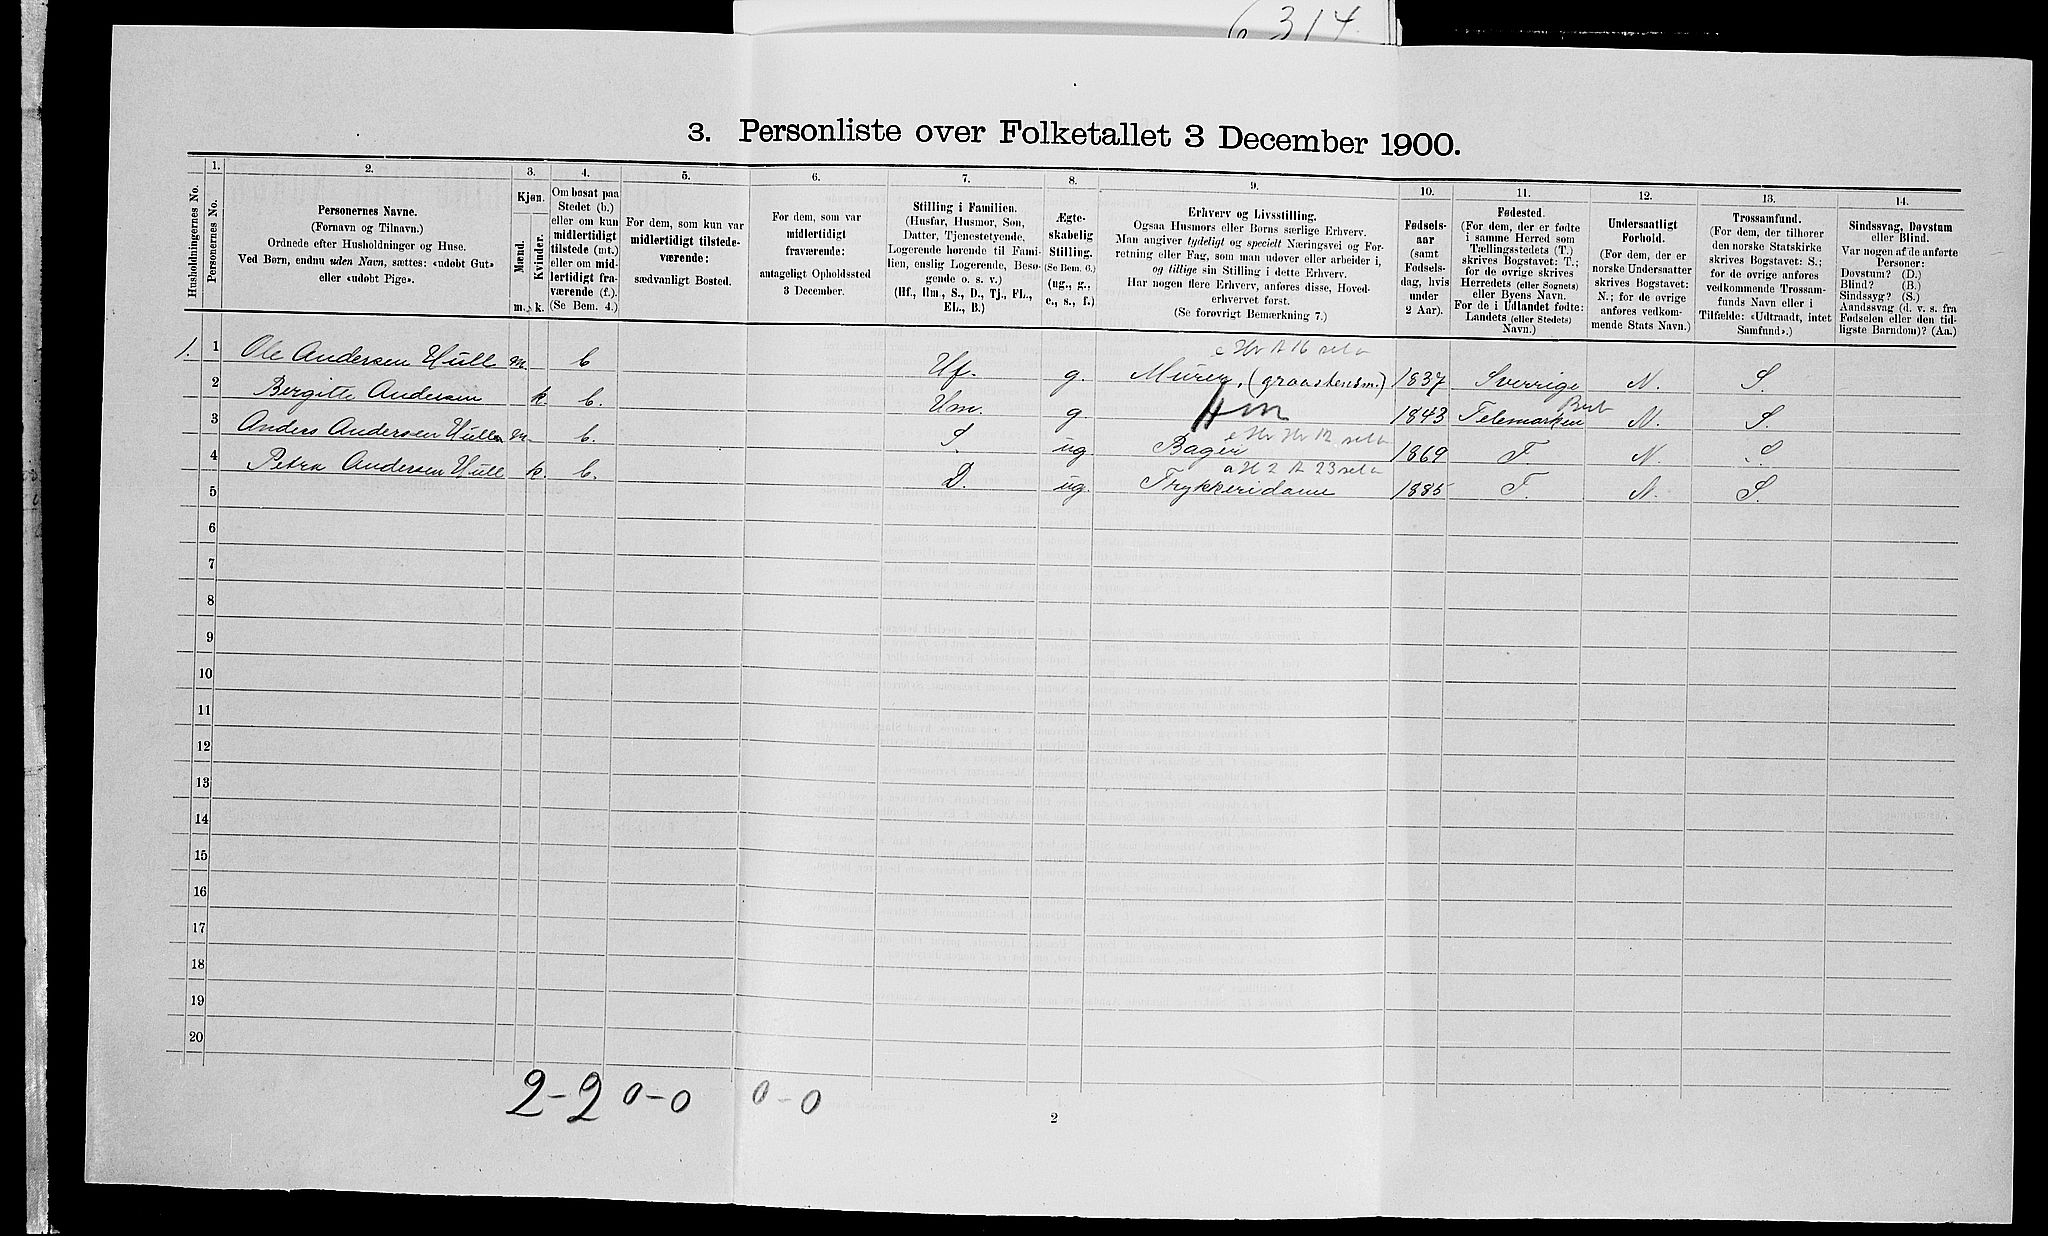 6314
3. Personliste over Folketallet 3 December 1900.
Husholdningernes No.
1.
Personernes No.
2.
Personernes Navne.
(Fornavn og Tilnavn.)
Ordnede efter Husholdninger og Huse.
Ved Børn, endnu uden Navn, sættes: «udøbt Gut»
eller «udøbt Pige».
3.
Kjøn.
Mænd.
Kvinder.
m. k.
4.
Om bosat paa
Stedet (b.)
eller om kun
midlertidigt
tilstede (mt.)
eller om mid-
lertidigt fra-
værende (f.).
(Se Bem. 4.)
5.
For dem, som kun var
midlertidigt tilstede-
værende:
sædvanligt Bosted.
6.
For dem, som var
midlertidigt
fraværende:
antageligt Opholdssted
3 December.
7.
Stilling i Familien.
(Husfar, Husmor, Søn,
Datter, Tjenestetyende,
Logerende hørende til Fami-
lien, enslig Logerende, Besø-
gende o. s. v.)
(Hf., Hm., S., D., Tj., FL.,
EL., B.)
8.
Ægte-
skabelig
Stilling.
(Se Bem. 6.)
(ug., g.,
e., s., f.)
9.
Erhverv og Livsstilling.
Ogsaa Husmors eller Børns særlige Erhverv.
Man angiver tydeligt og specielt Næringsvei og For-
retning eller Fag, som man udøver eller arbeider i,
og tillige sin Stilling i dette Erhverv.
Har nogen flere Erhverv, anføres disse, Hoved-
erhvervet først.
(Se forøvrigt Bemærkning 7.)
10.
Fødsels-
aar
(samt
Fødsels-
dag, hvis
under
2 Aar).
11.
Fødested.
(For dem, der er fødte
i samme Herred som
Tællingsstedets (T.)
skrives Bogstavet: T.;
for de øvrige skrives
Herredets (eller Sognets)
eller Byens Navn.
For de i Udlandet fødte:
Landets (eller Stedets)
Navn.)
12.
Undersaatligt
Forhold.
(For dem, der er
norske Undersaatter
skrives Bogstavet:
N.; for de øvrige
anføres vedkom-
mende Stats Navn.)
13.
Trossamfund.
(For dem, der tilhører
den norske Statskirke
skrives Bogstavet: S.;
for de øvrige anføres
vedkommende Trossam-
funds Navn eller i
Tilfælde: «Udtraadt, intet
Samfund».)
14.
Sindssvag, Døvstum
eller Blind.
Var nogen af de anførte
Personer:
Døvstum? (D.)
Blind? (B.)
Sindssyg? (S.)
Aandssvag (d. v. s. fra
Fødselen eller den tid-
ligste Barndom)? (Aa.)
1. 1 Ole Andersen Hull m. b Hf. g. Murer, (graastensm.) 1837 Sverrige N. S.
2 Bergitte Andersen k. b. Hm. g Hm 1843 Telemarken N. S.
3 Anders Andersen Hull m. b. S. ug Bager 1869 T. N. S
4 Petra Andersen Hull k. b. D. ug. Trykkeridame 1885 T. N. S.
5
6
7
8
9
10
11
12
13
14
15
16
17
18
19
20
2-2 0-0 0-0
2